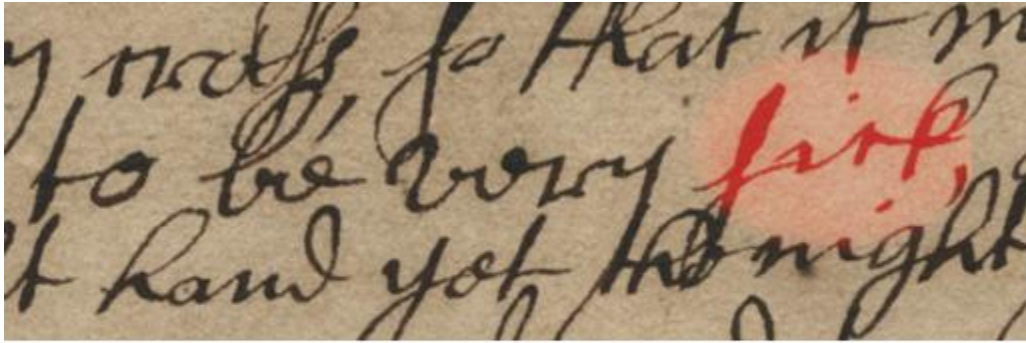 so that it
to be very sick,
t hand yet the night